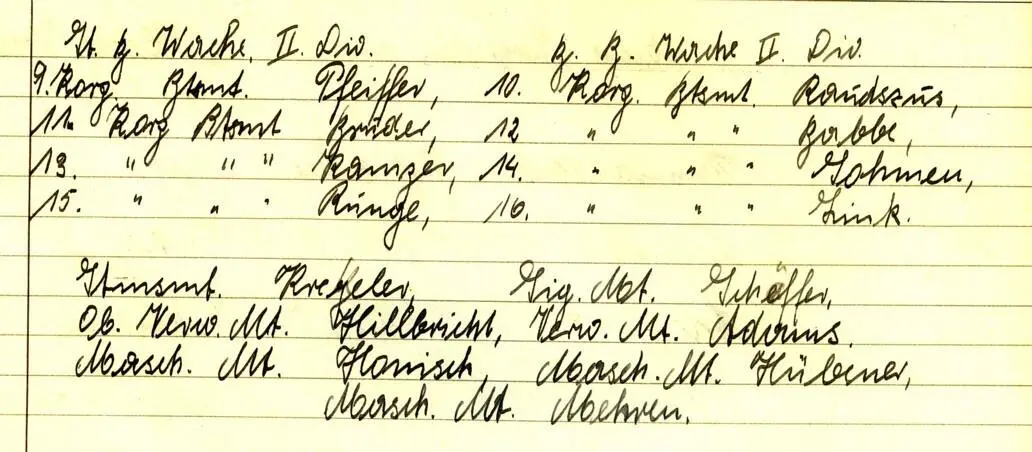 St. B. Wache. II. Div. B. B. Wache II Div.
9. Korg. Btsmt. Pfeiffer, 10. Korg. Btsmt. Raudszus,
11. Korg Btsmt Brüder, 12 " " " Babbe,
13. " " " Kamzer, 14. " " " Gohmen,
15. " " " Runge, 16. " " " Zink.
Stmsmt. Kreßeler, Sig. Mt. Schäffer,
Ob. Verw. Mt. Hillbricht, Verw. Mt. Adams.
Masch. Mt. Hanisch, Masch. Mt. Hübener,
Masch. Mt. Mehren.